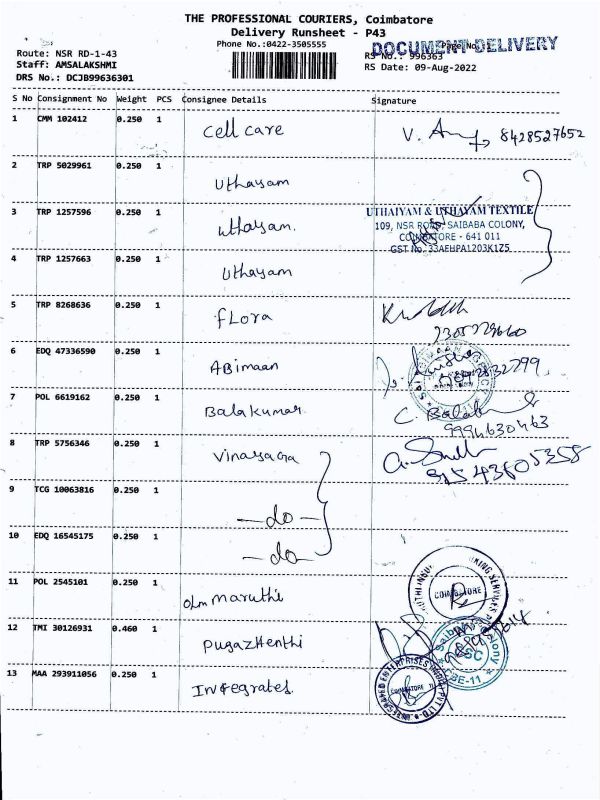 THE PROFESSIONAL COURIERS, Coimbatore
Delivery Runsheet - P43
Phone No.:0422-3505555
DOCUMENT DELIVERY
Route: NSR RD-1-43
RS No.: 996363
Staff: AMSALAKSHMI
RS Date: 09-Aug-2022
DRS No.: DCJB99636301
S No Consignment No Weight PCS Consignee Details Signature
1 CMM 102412 0.250 1 Cell care 8428527652
2 TRP 5029961 0.250 1 Uthayam
3 TRP 1257596 0.250 1 Uthayam.
UTHAIYAM & UTHAYAM TEXTILE
109, NSR ROAD, SAIBABA COLONY,
COIMBATORE - 641 011
GST No. 33AEHPA1203K1Z5
4 TRP 1257663 0.250 1 Uthayam
5 TRP 8268636 0.250 1 FLora
6 EDQ 47336590 0.250 1 ABimaan
7 POL 6619162 0.250 1 Balakumar
9994630463
8 TRP 5756346 0.250 1 Vinayaga
9 TCG 10063816 0.250 1 -do-
10 EDQ 16545175 0.250 1 -do-
11 POL 2545101 0.250 1 maruthi
COIMBATORE
12 TMI 30126931 0.460 1 Pugazhenthi
CBE-11
13 MAA 293911056 0.250 1 Integrates.